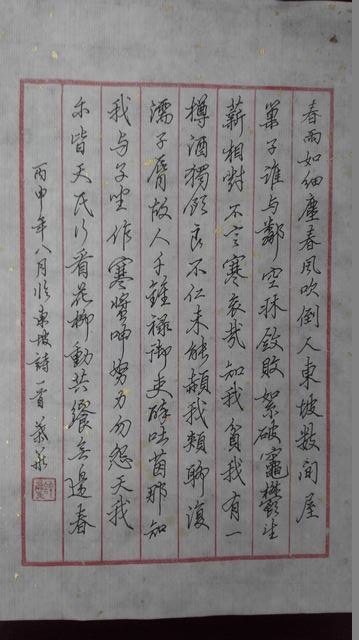 春雨如細塵春風吹倒人東坡数间屋
巢子谁与鄰空牀斂敗絮破竈鬱生
薪相對不言寒哀哉知我貧我有一
樽酒獨飲良不仁未能赬我頰聊復
濡子脣故人千鍾禄御吏醉吐茵那知
我与子坐作寒螿呻努力勿怨天我
尔皆天民行看花柳動共饗無邊春
丙申年八月临東坡詩一首